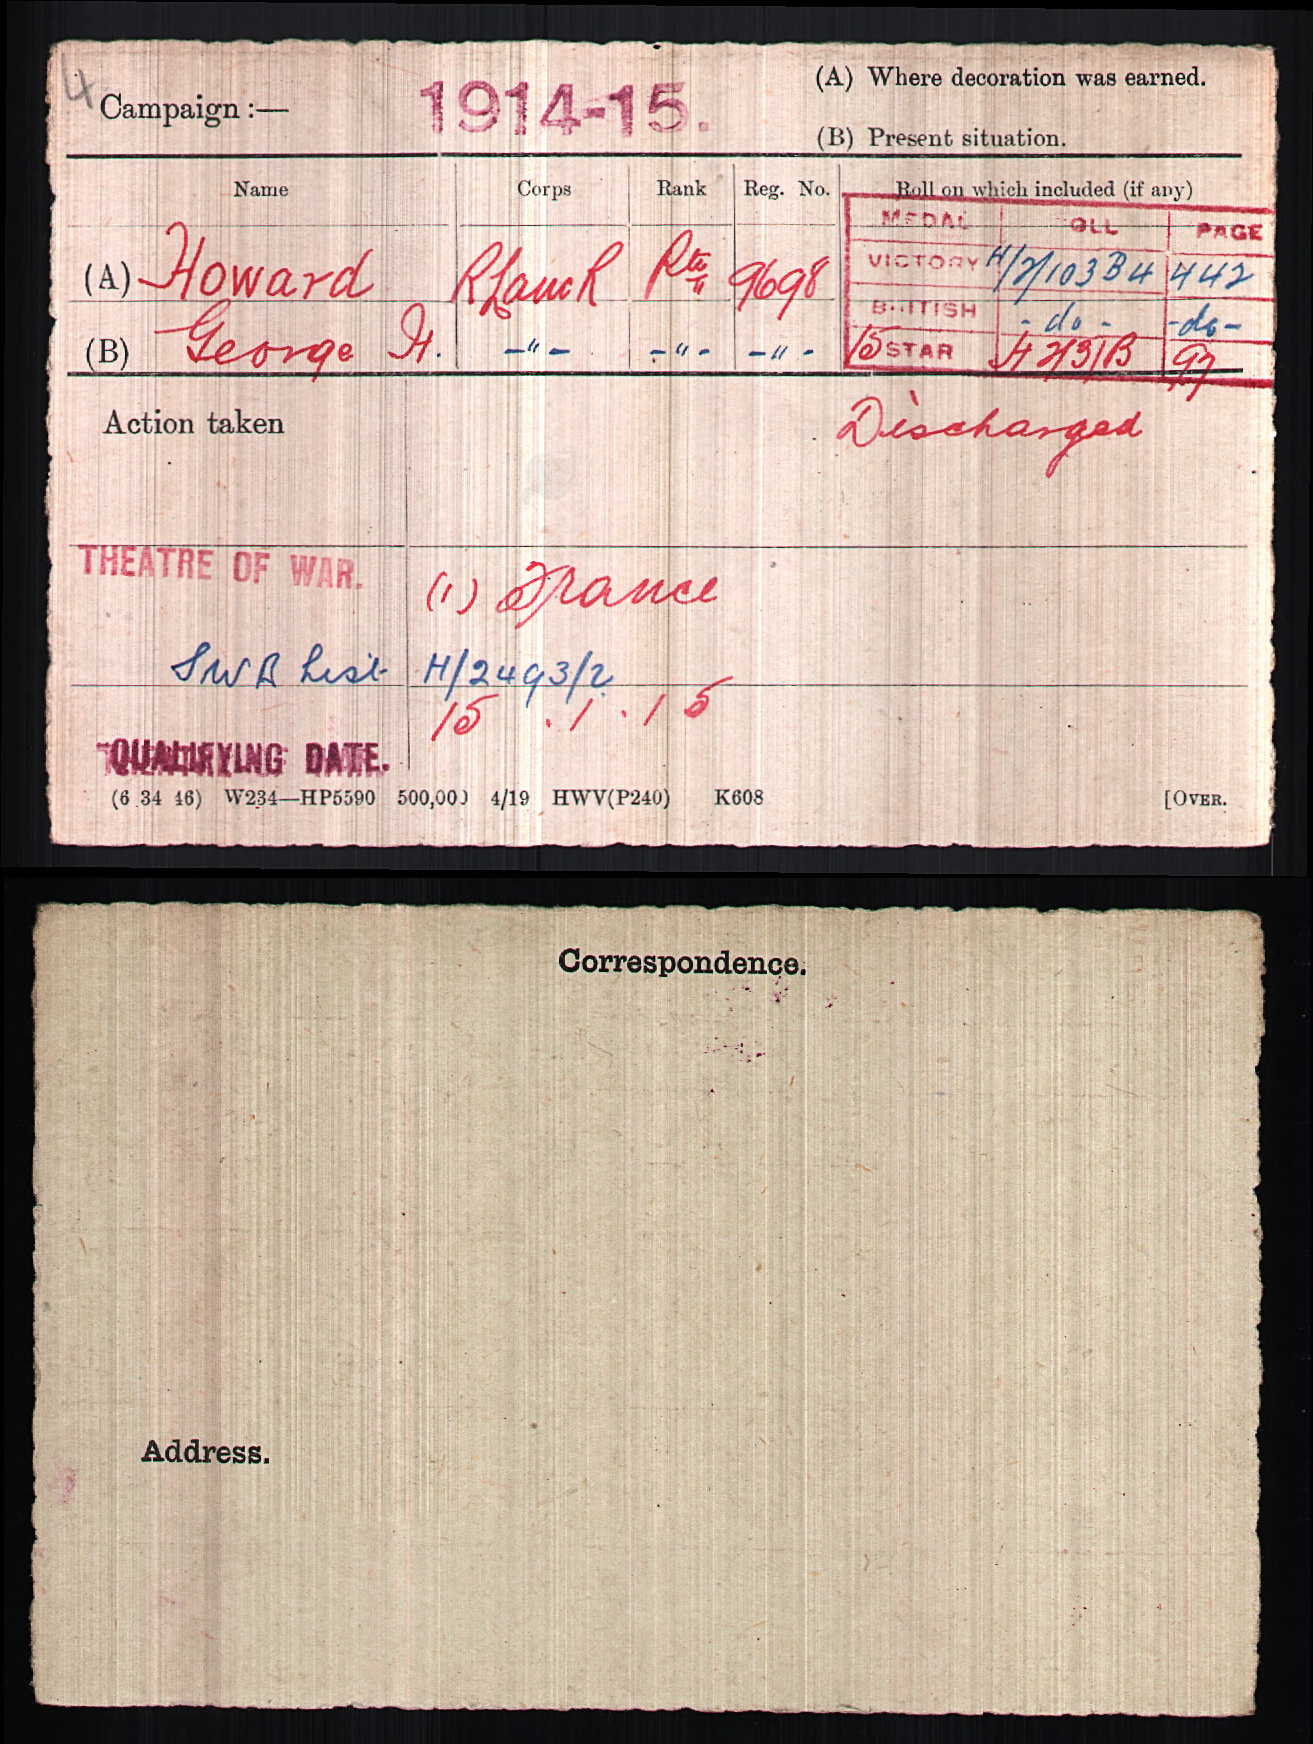 4
Campaign :— 1914-15.
(A) Where decoration was earned.
(B) Present situation.
Name Corps Rank Reg. No. Roll on which included (if any)
MEDAL ROLL PAGE
(A) Howard R Lanc R Pte 9698 VICTORY H/2/103 B4 442
BRITISH - do - - do -
(B) George H. -"- -"- -"- 15 STAR H 2/31B 97
Action taken Discharged
THEATRE OF WAR. (1) France
SWB List H/2493/2
15 . 1 . 15
QUALIFYING DATE.
(6 34 46) W234—HP5590 500,000 4/19 HWV(P240) K608 [OVER.
Correspondence.
Address.